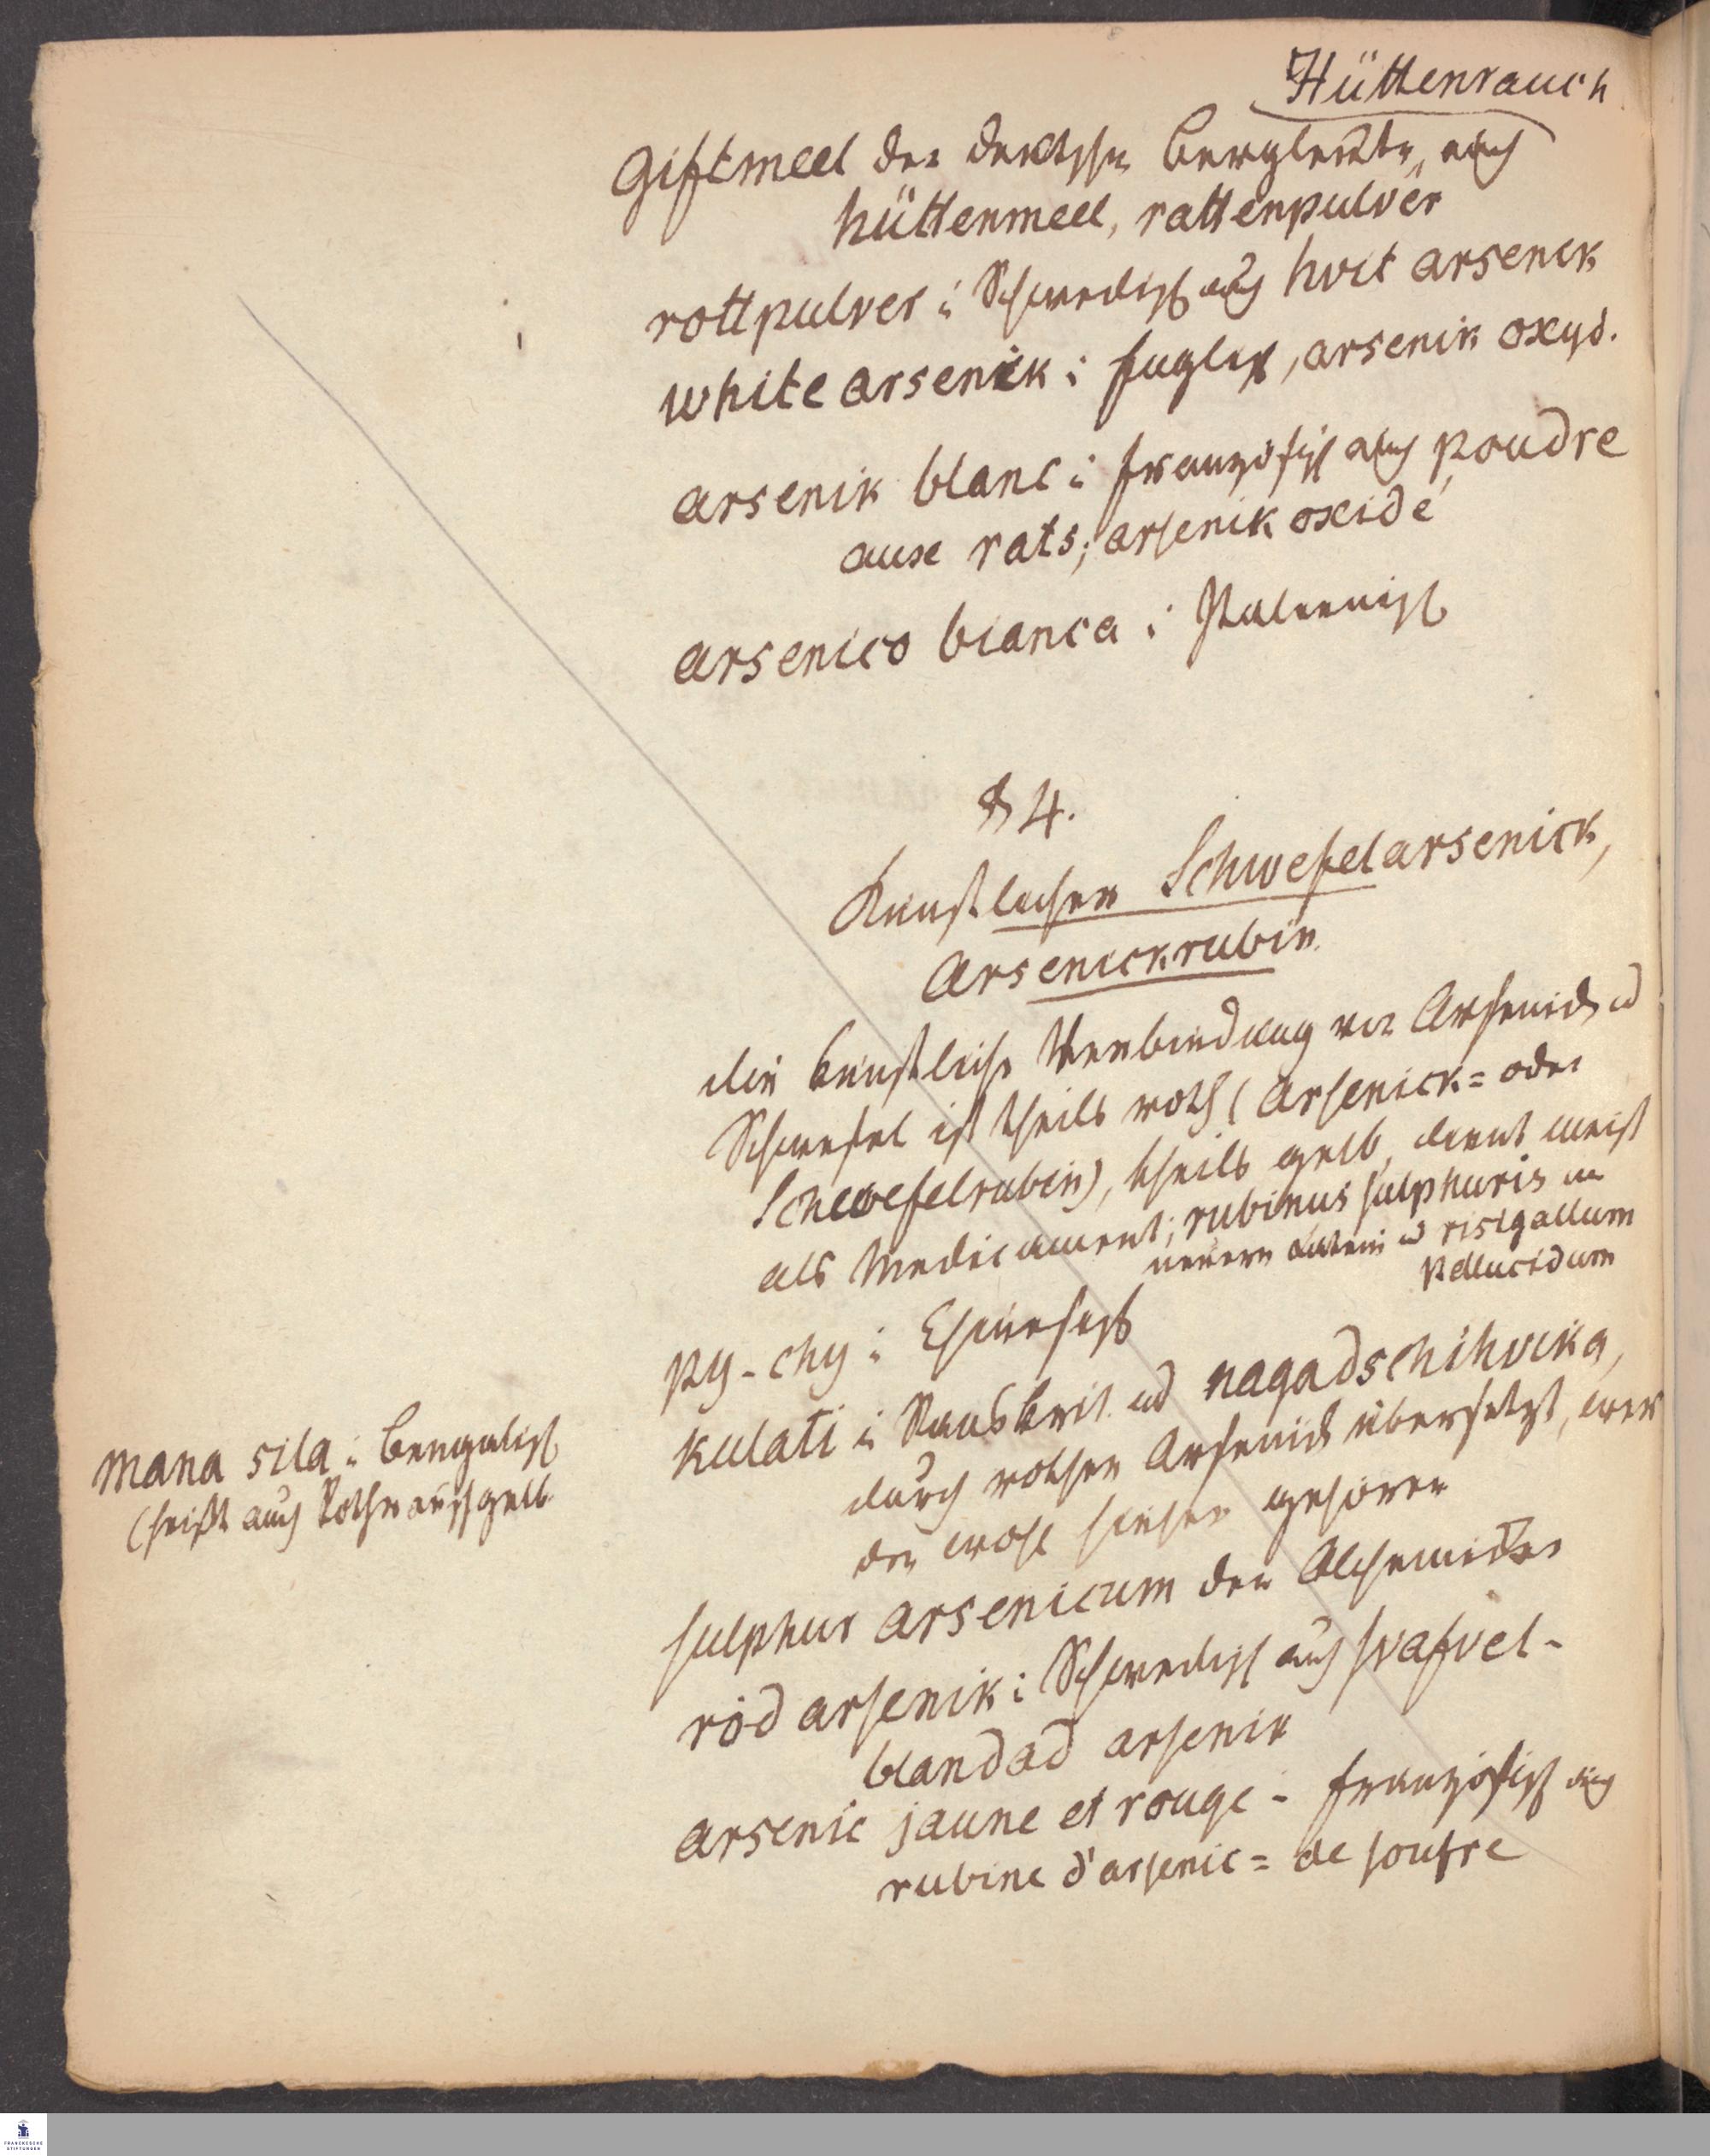 Hüttenrauch
Giftmeel der deutschen Bergleute, auch
hüttenmeel, rattenpulver
rottpulver i Schwedisch auch hvit arsenik
white arsenick i Englisch, arsenik oxyd.
arsenik blanc i französisch auch poudre
aux rats; arsenik oxidé
arsenico bianca i Italienisch
§ 4.
Künstlicher Schwefelarsenick,
Arsenickrubin.
die künstliche Verbindung von Arsenick u
Schwefel ist theils roth (Arsenick= oder
Schwefelrubin), theils gelb, dient meist
als Medicament; rubinus sulphuris im
neuern Latein u risigallum
pellucidum
py-chy i Chinesisch
kulati i Sanskrit. ud nagadschihvika,
durch rothen Arsenick übersetzt, wer
den wohl hieher gehören
mana sila i Bengalisch
(heißt auch Rothrauschgelb
sulphur arsenicum der Alchemisten
röd arsenik i Schwedisch auch svafvel-
blandad arsenik
arsenic jaune et rouge - französisch auch
rubine d'arsenic = de soufre
FRANCKESCHE
STIFTUNGEN